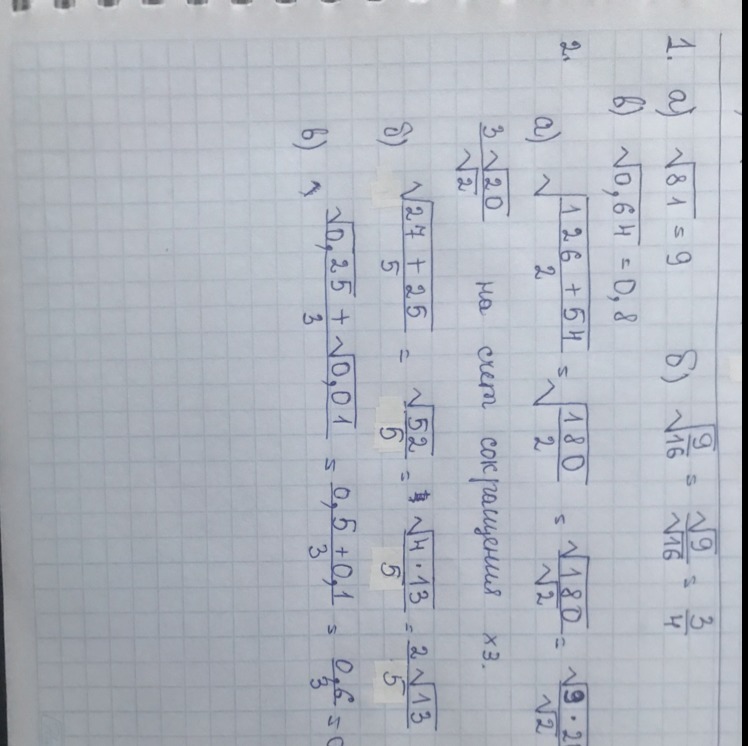 1. а) √81 = 9 б) √9/16 = √9/√16 = 3/4
в) √0,64 = 0,8
2. а) √126 + 54/2 = √180/2 = √180/√2 = √9·2
3√20/√2 на счет сокращения хз.
б) √27 + 25/5 = √52/5 = √4·13/5 = 2√13/5
в) √0,25 + √0,01/3 = 0,5 + 0,1/3 = 0,6/3 = 0